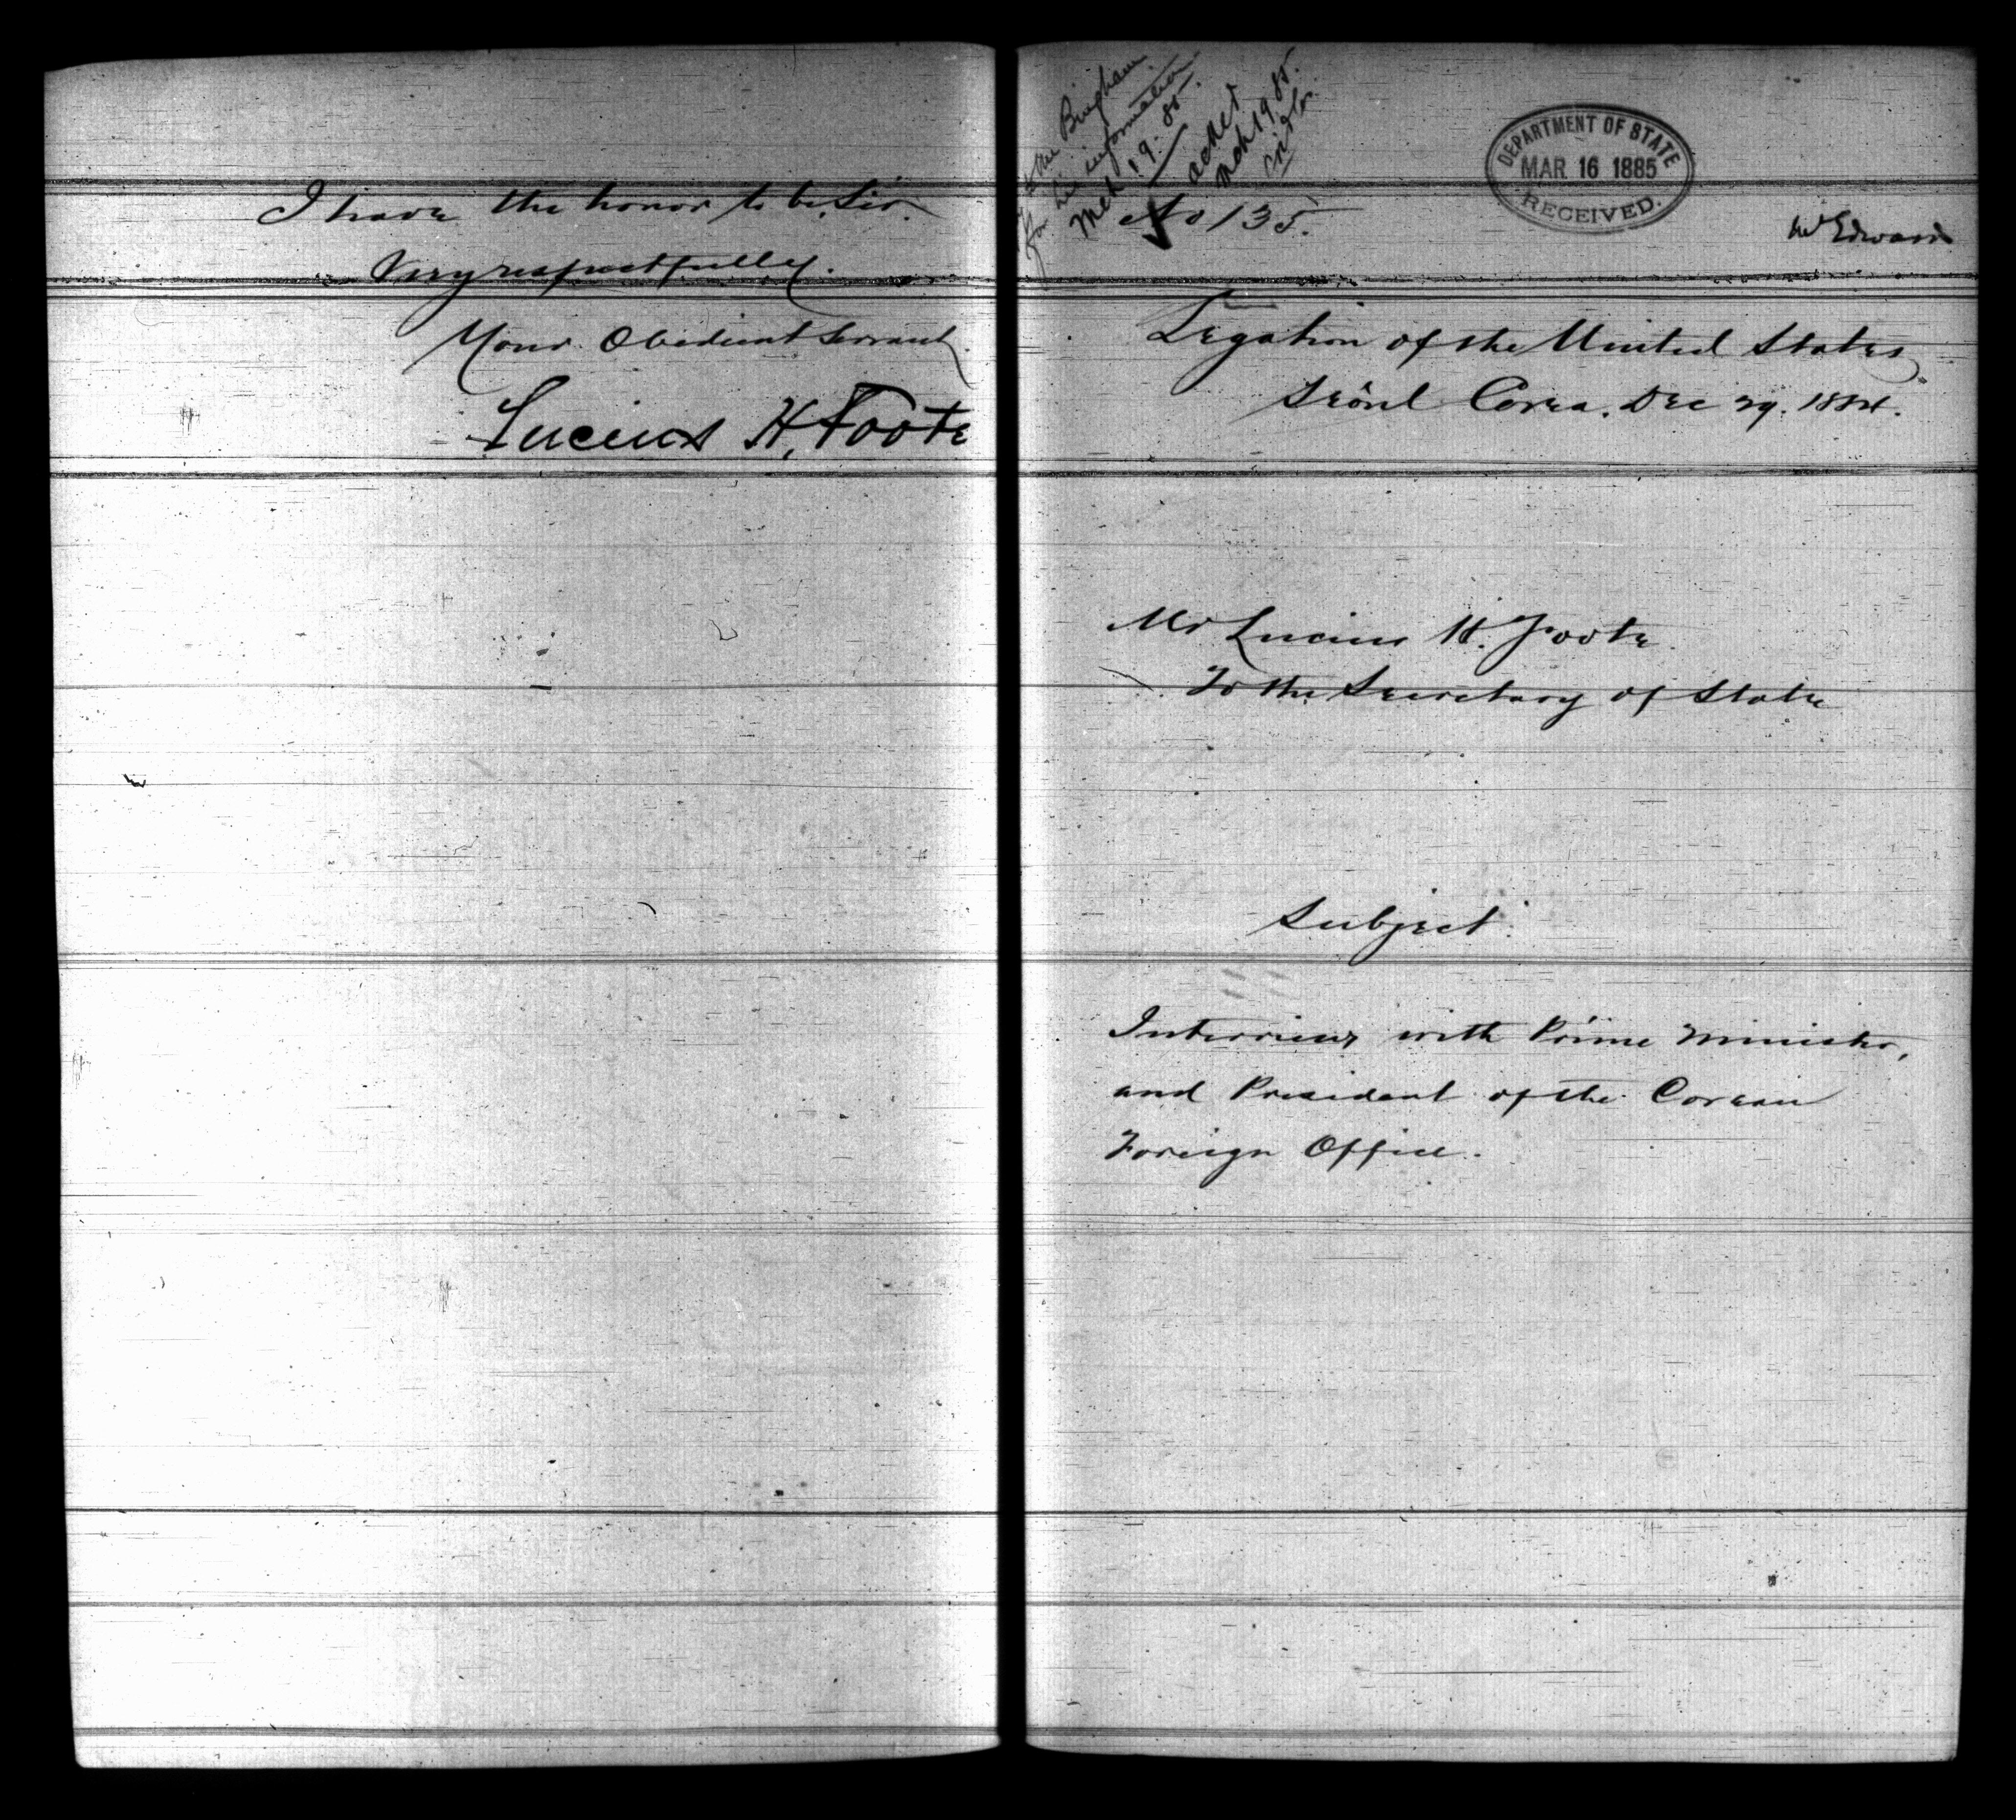 I have the honor to be, Sir.
Very respectfully.
Your Obedient Servant.
Lucius H. Foote
Mr Bingham
for his information
Mch 19. 85.
ackd
Mch 19 85.
No 135.
DEPARTMENT OF STATE
MAR 16 1885
RECEIVED.
Legation of the United States,
Seôul Corea. Dec 29. 1884.
Mr Lucius H. Foote.
To the Secretary of State
Subject.
Interview with Prime Minister,
and President of the Corean
Foreign Office.